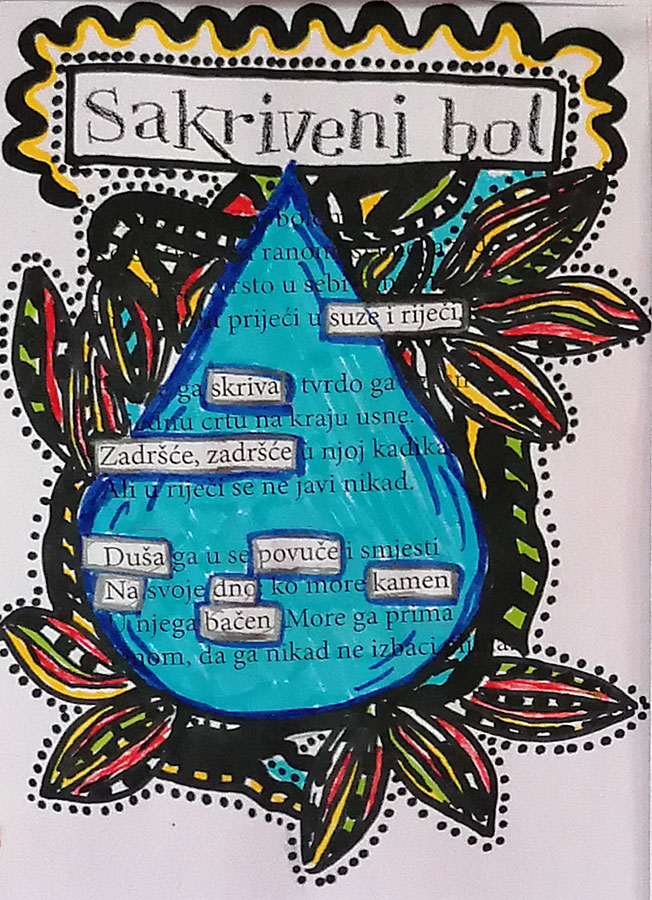 Sakriveni bol
prijeći u suze i riječi.
ga skriva tvrdo ga
crtu na kraju usne.
Zadršće, zadršće u njoj kadikad
Ali u riječi se ne javi nikad.
Duša ga u se povuče i smjesti
Na svoje dno: ko more kamen
U njega bačen. More ga prima
da ga nikad ne izbaci